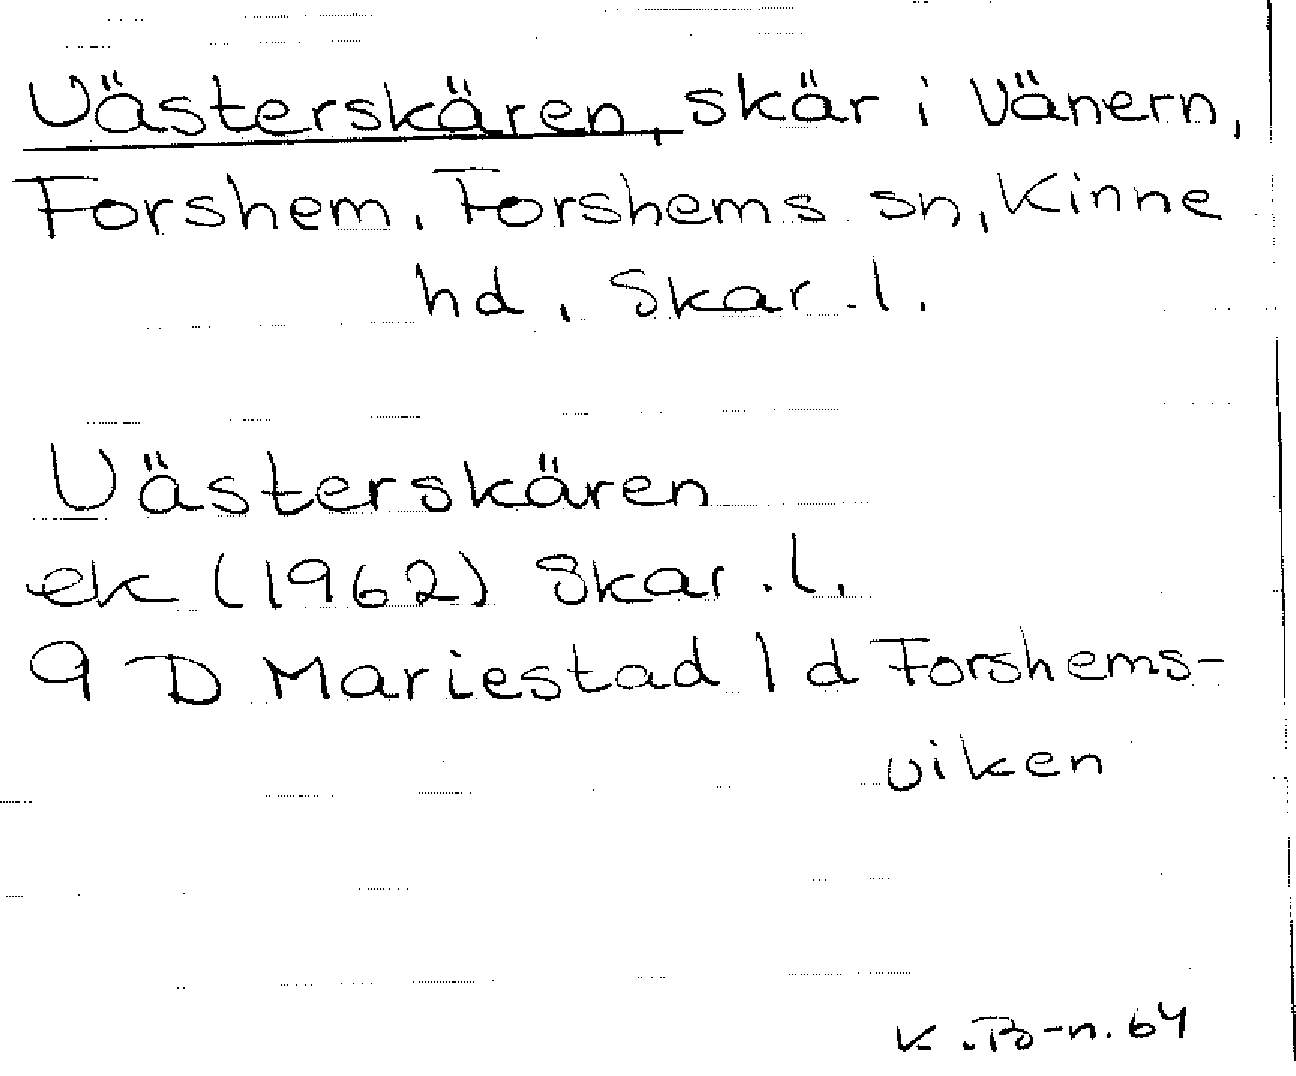 Västerskären, skär i Vänern,
Forshem, Forshems sn, Kinne
hd, Skar. l.
Västerskären
ek (1962) Skar. l.
9 D Mariestad 1 d Forshems-
viken
K. B-n. 64